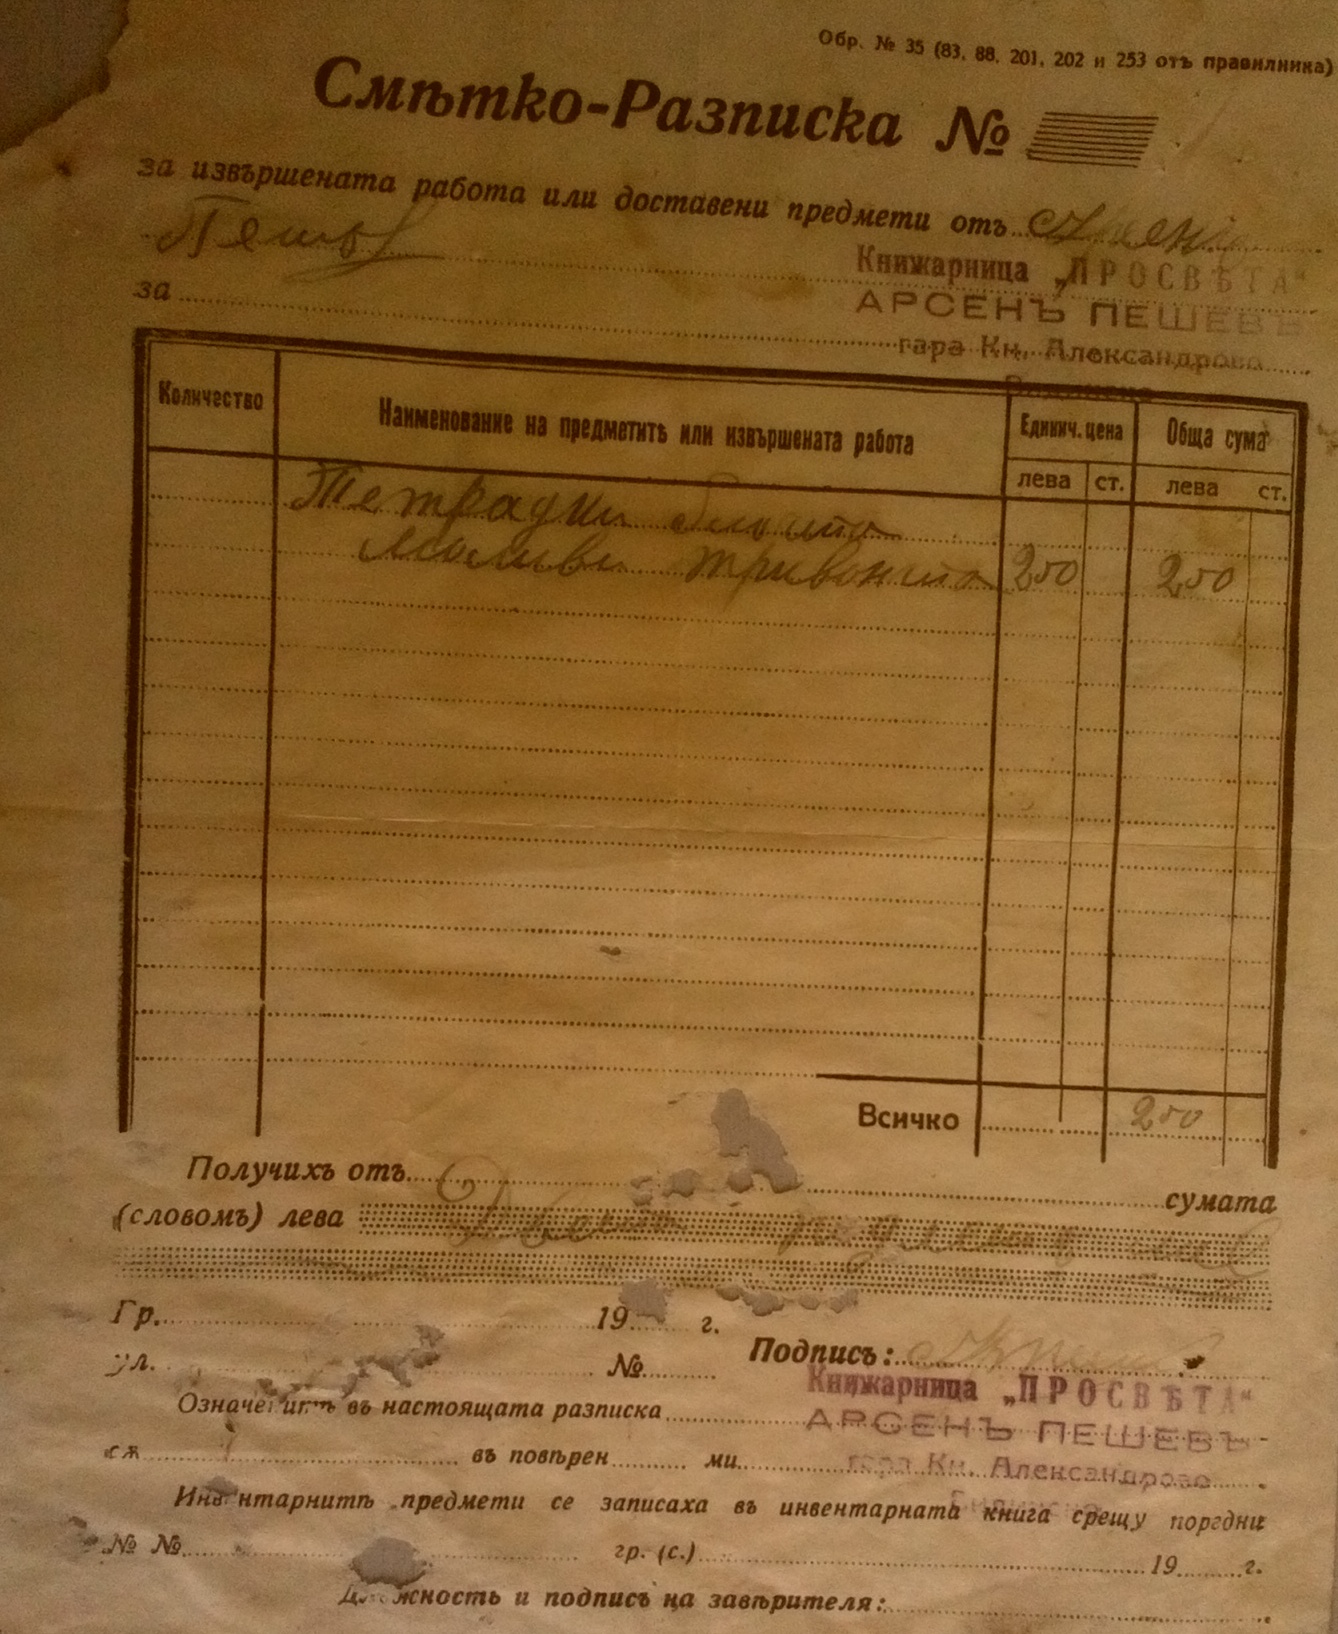 Обр. № 35 (83, 88, 201, 202 и 253 отъ правилника)
Смѣтко-Разписка №
за извършената работа или доставени предмети отъ Арсенъ
Пешевъ
Книжарница „ПРОСВѢТА“
за
АРСЕНЪ ПЕШЕВЪ
гара Кн. Александрово
Количество Наименование на предметитѣ или извършената работа Единич. цена Обща сума
лева ст. лева ст.
Тетрадки
Моливи 250 250
Всичко 250
Получихъ отъ сумата
(словомъ) лева Двеста и
Гр. 19 г.
ул. № Подписъ:
Книжарница „ПРОСВѢТА“
Означенитѣ въ настоящата разписка
АРСЕНЪ ПЕШЕВЪ
сѫ въ повѣрен ми
гара Кн. Александрово
Инвентарнитѣ предмети се записаха въ инвентарната книга срещу поредни
№ № гр. (с.) 19 г.
Длъжность и подписъ на завѣрителя: